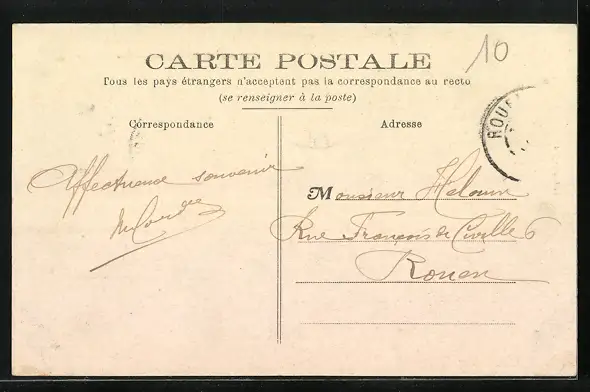 CARTE POSTALE
10
Tous les pays étrangers n'acceptent pas la correspondance au recto
(se renseigner à la poste)
Correspondance
Adresse
ROUE
Affectueux souvenir
Monsieur
Rue François de Civille 6
Rouen